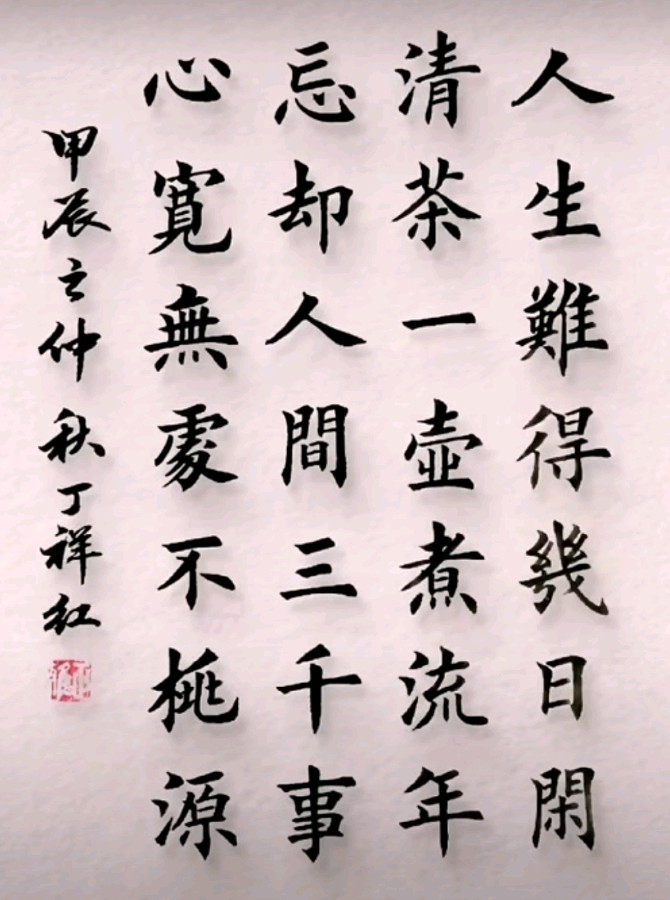 人生難得幾日閑
清茶一壺煮流年
忘却人間三千事
心寬無處不桃源
甲辰之仲秋丁祥紅